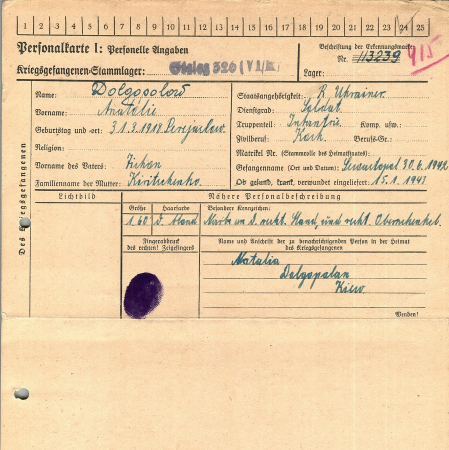 1 2 3 4 5 6 7 8 9 10 11 12 13 14 15 16 17 18 19 20 21 22 23 24 25
Personalkarte I: Personelle Angaben
Kriegsgefangenen-Stammlager: Stalag 326 (VI/K)
Beschriftung der Erkennungsmarke
Nr. 113239
415
Lager:
Des Kriegsgefangenen
Name: Dolgopolow
Vorname: Anatolie
Geburtstag und -ort: 31.3.1918 Perejaslow
Religion:
Vorname des Vaters:
Familienname der Mutter: Kiritschenko
Staatsangehörigkeit: R. Ukrainer
Dienstgrad: Soldat
Truppenteil: Infantrie Komp. usw.:
Zivilberuf: Koch Berufs-Gr.:
Matrikel Nr. (Stammrolle des Heimatstaates):
Gefangennahme (Ort und Datum): Sewastopol 30.6.1942
Ob gesund, krank, verwundet eingeliefert: 15.1.1943
Lichtbild
Nähere Personalbeschreibung
Größe Haarfarbe Besondere Kennzeichen:
1.60 d. blond Narbe an d. recht. Hand, und recht. Oberschenkel
Fingerabdruck
des rechten! Zeigefingers
Name und Anschrift der zu benachrichtigenden Person in der Heimat
des Kriegsgefangenen
Natalia
Dolgopolan
Kiew
Wenden!